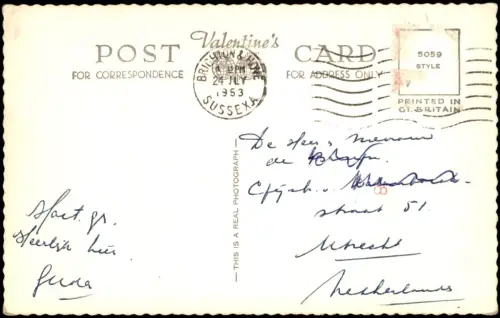 POST Valentine's CARD
FOR CORRESPONDENCE
FOR ADDRESS ONLY
BRIGHTON & HOVE
PM
24 JLY
1953
SUSSEX A
5059
STYLE
PRINTED IN
GT. BRITAIN
THIS IS A REAL PHOTOGRAPH
Hart. gr.
Heerlijk hier
Guda
De Heer & mevrouw
de
straat 51.
Utrecht
Netherlands